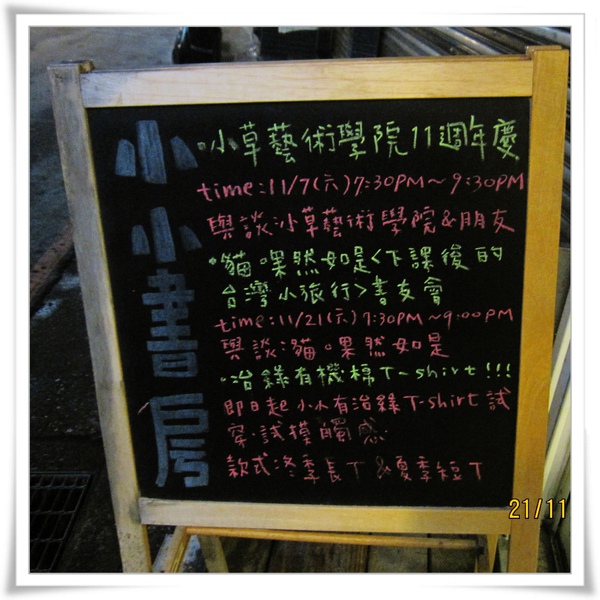 小小書房
·小草藝術學院11週年慶
time:11/7(六)7:30PM~9:30PM
與談:小草藝術學院&朋友
·貓。果然如是<下課後的
台灣小旅行>書友會
time:11/21(六)7:30PM~9:00PM
與談:貓。果然如是
·冶綠有機棉T-shirt!!!
即日起小小有冶綠T-shirt試
穿.試摸觸感.
款式:冬季長T &夏季短T
21/11